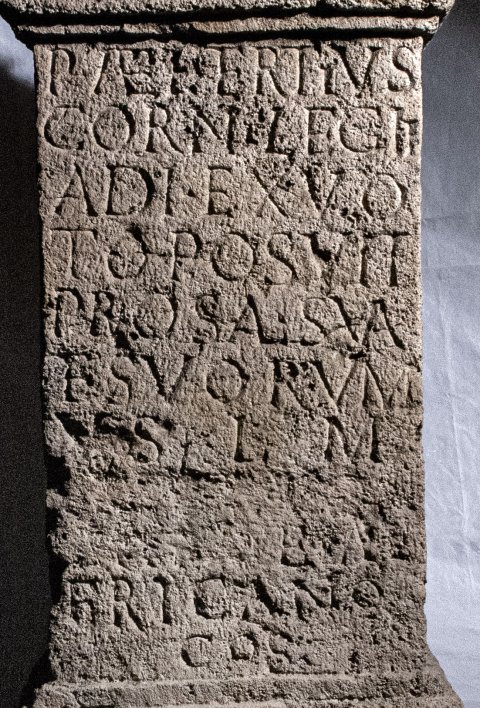 TERTIVS
CORN LEG II
ADI EX VO
TO POSVIT
PRO SAL SVA
E SVORVM
V S L M
FRICANO
CO